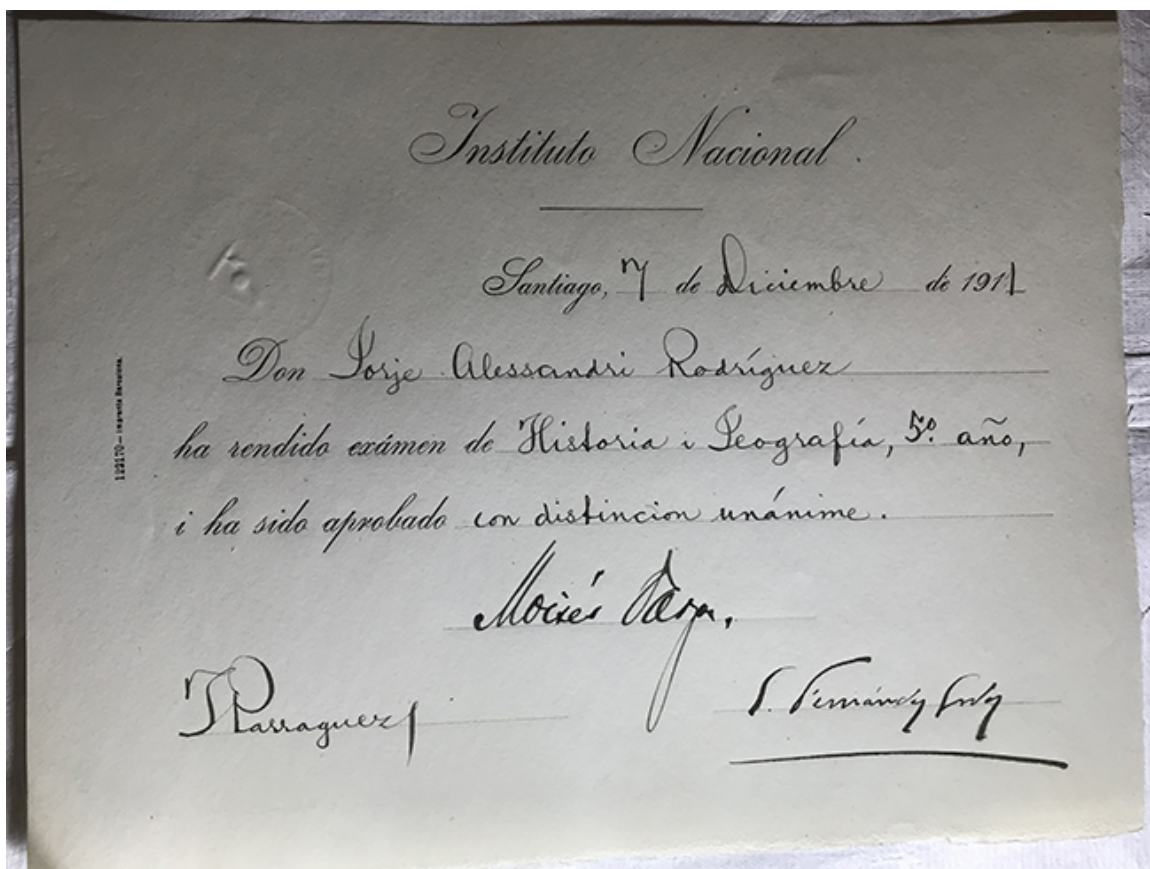 Instituto Nacional.
Santiago, 7 de Diciembre de 1911
Don Jorje Alessandri Rodríguez
ha rendido exámen de Historia i Jeografía, 5º. año,
i ha sido aprobado con distincion unánime.
Moisés
Parraguez
129170—Imprenta Barcelona.